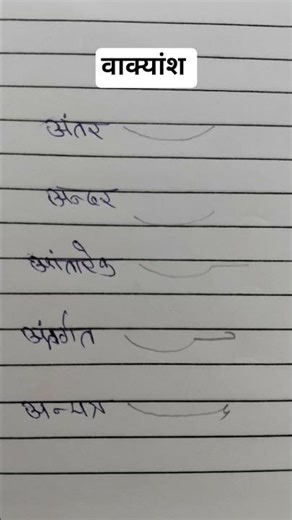 वाक्यांश
अंतर
अन्दर
आंतरिक
अंतर्गत
अन्यत्र